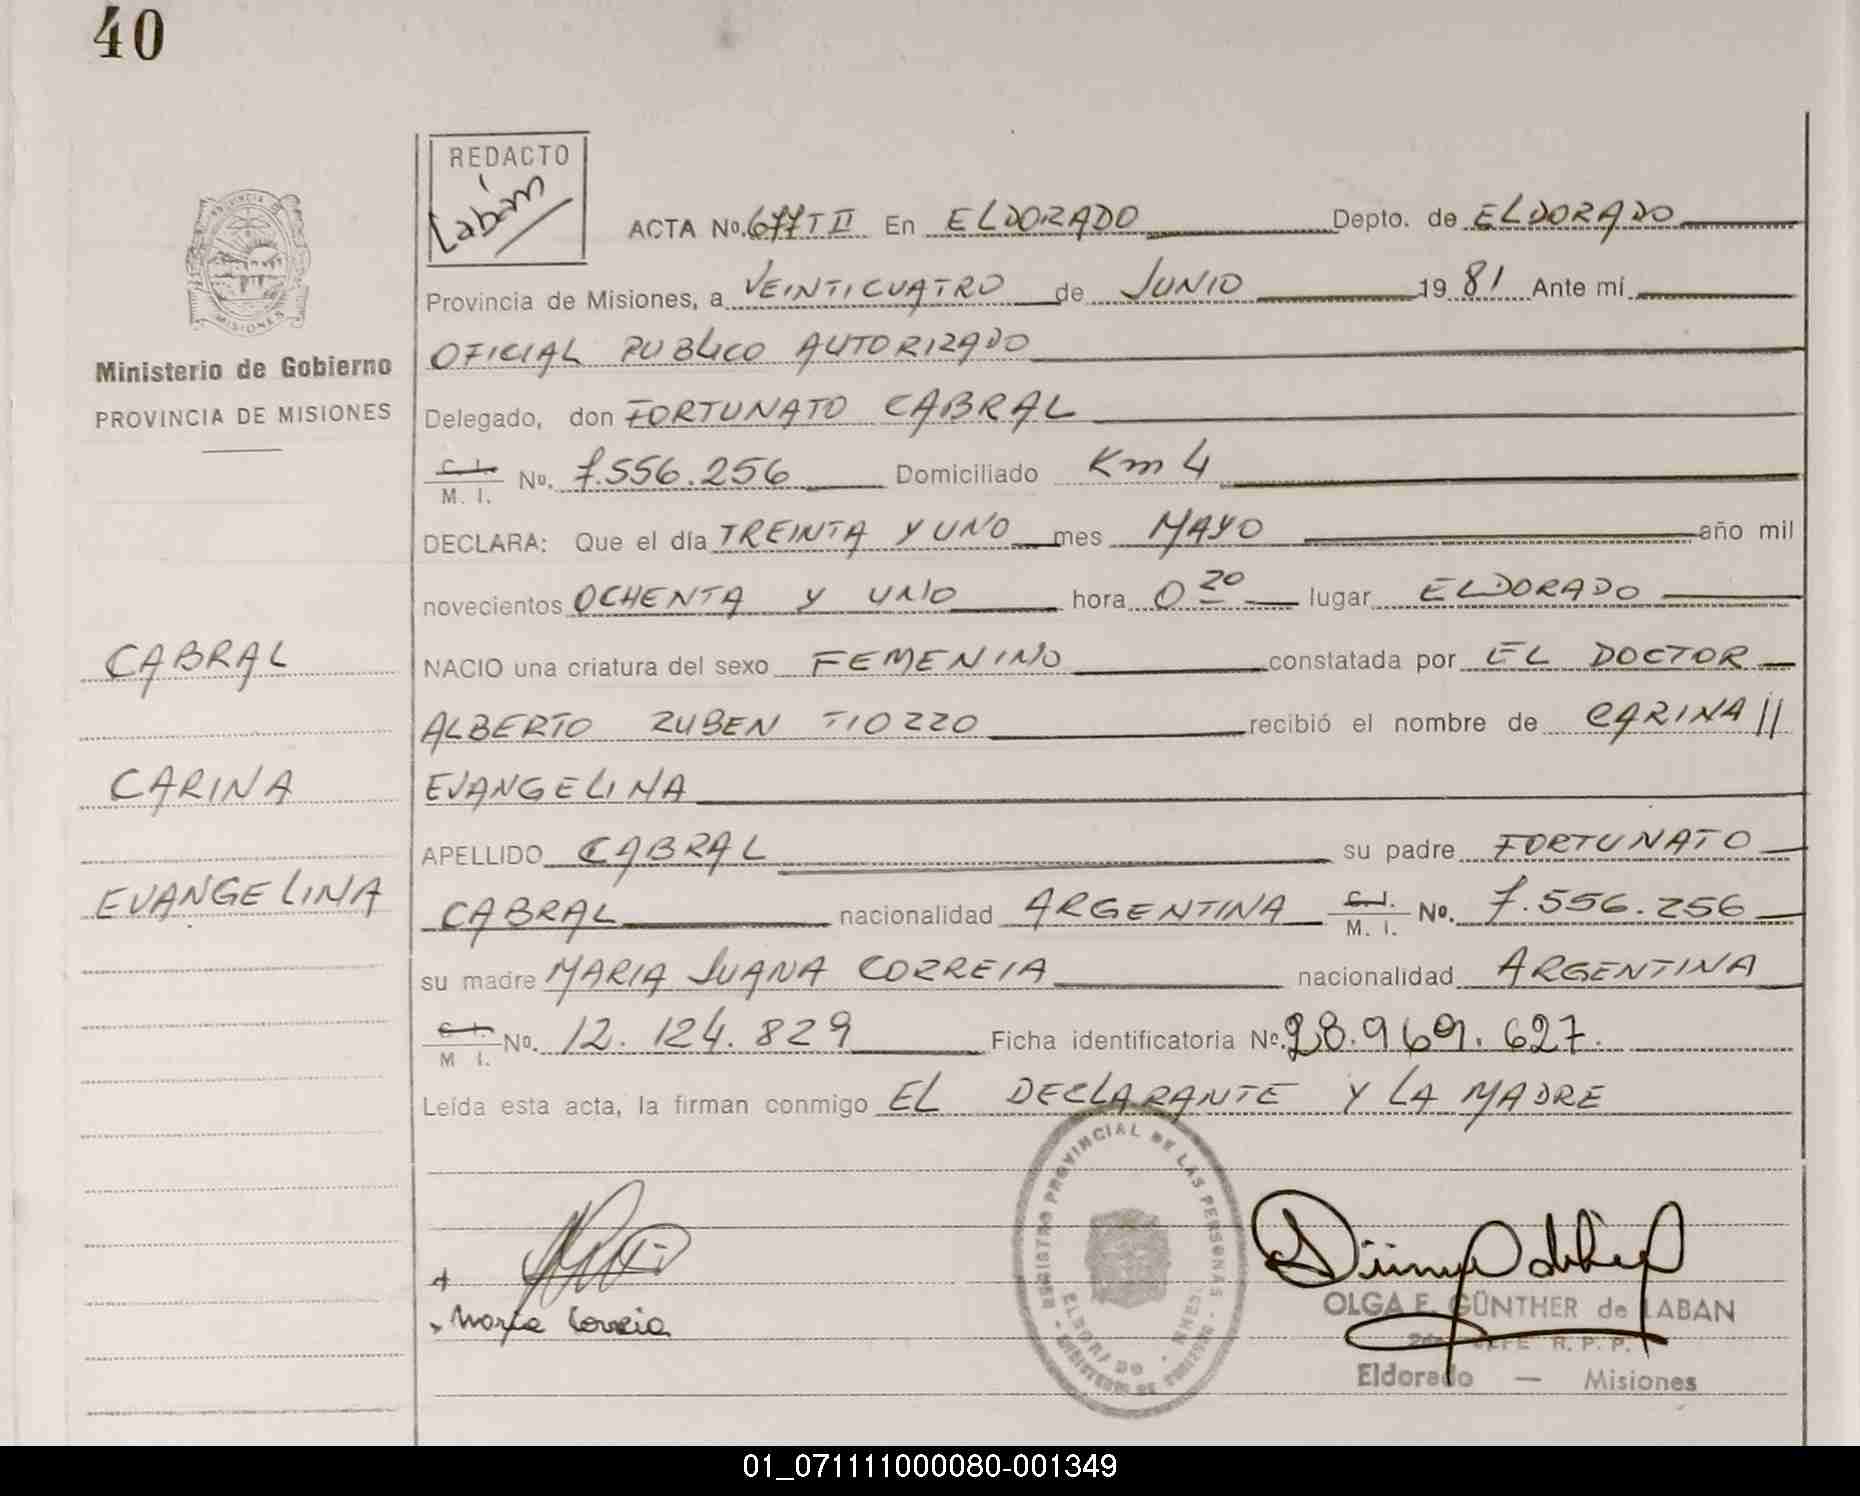 40
REDACTO
Labán
ACTA No. 677 T II En ELDORADO Depto. de ELDORADO
Provincia de Misiones, a VEINTICUATRO de JUNIO 1981 Ante mí
OFICIAL PUBLICO AUTORIZADO
Delegado, don FORTUNATO CABRAL
C. I. M. I. No. 7.556.256 Domiciliado Km 4
DECLARA: Que el día TREINTA Y UNO mes MAYO año mil
novecientos OCHENTA Y UNO hora 0 20 lugar ELDORADO
NACIO una criatura del sexo FEMENINO constatada por EL DOCTOR
ALBERTO RUBEN TIOZZO recibió el nombre de CARINA //
EVANGELINA
APELLIDO CABRAL su padre FORTUNATO
CABRAL nacionalidad ARGENTINA C. I. M. I. No. 7.556.256
su madre MARIA JUANA CORREIA nacionalidad ARGENTINA
C. I. M I. No. 12.124.829 Ficha identificatoria No. 28.969.627.
Leída esta acta, la firman conmigo EL DECLARANTE Y LA MADRE
PROVINCIA DE
MISIONES
Ministerio de Gobierno
PROVINCIA DE MISIONES
CABRAL
CARINA
EVANGELINA
Maria Correia
REGISTRO PROVINCIAL DE LAS PERSONAS
ELDORADO
MINISTERIO DE GOBIERNO
OLGA E. GÜNTHER de LABAN
JEFE R. P. P.
Eldorado — Misiones
01_071111000080-001349